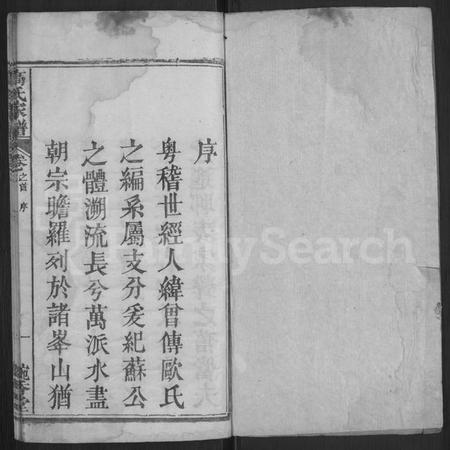 序
粵稽世經人緯曾傳歐氏
之編系屬支分爰紀蘇公
之體溯流長兮萬派水盡
朝宗瞻羅列於諸峯山猶
高氏家譜 卷之首 序 一
FamilySearch